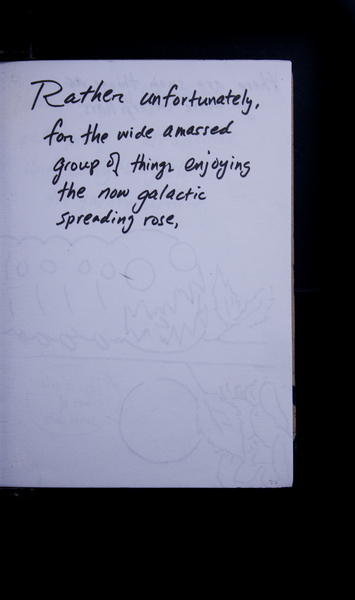 Rather unfortunately,
for the wide amassed
group of things enjoying
the now galactic
spreading rose,